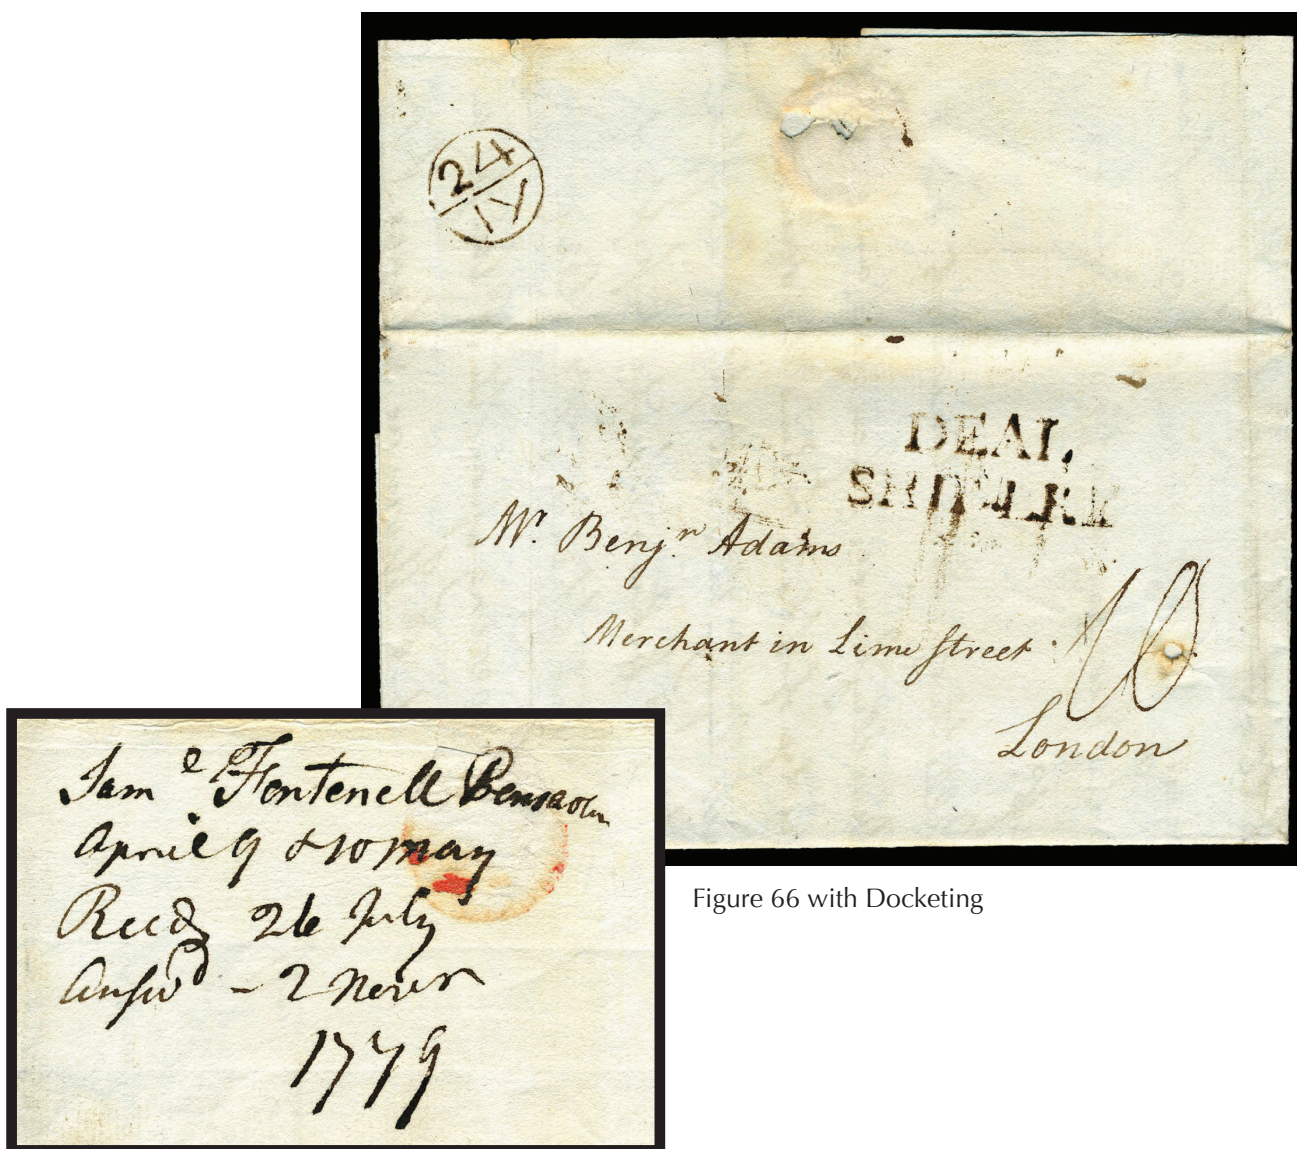 24
IY
DEAL
SHIP LRE
Mr. Benjn Adams
Merchant in Lime street
10
London
Saml Fontenell
April 9 & 10 May
Recd 26 July
Answd - 2 Novr
1779
Figure 66 with Docketing